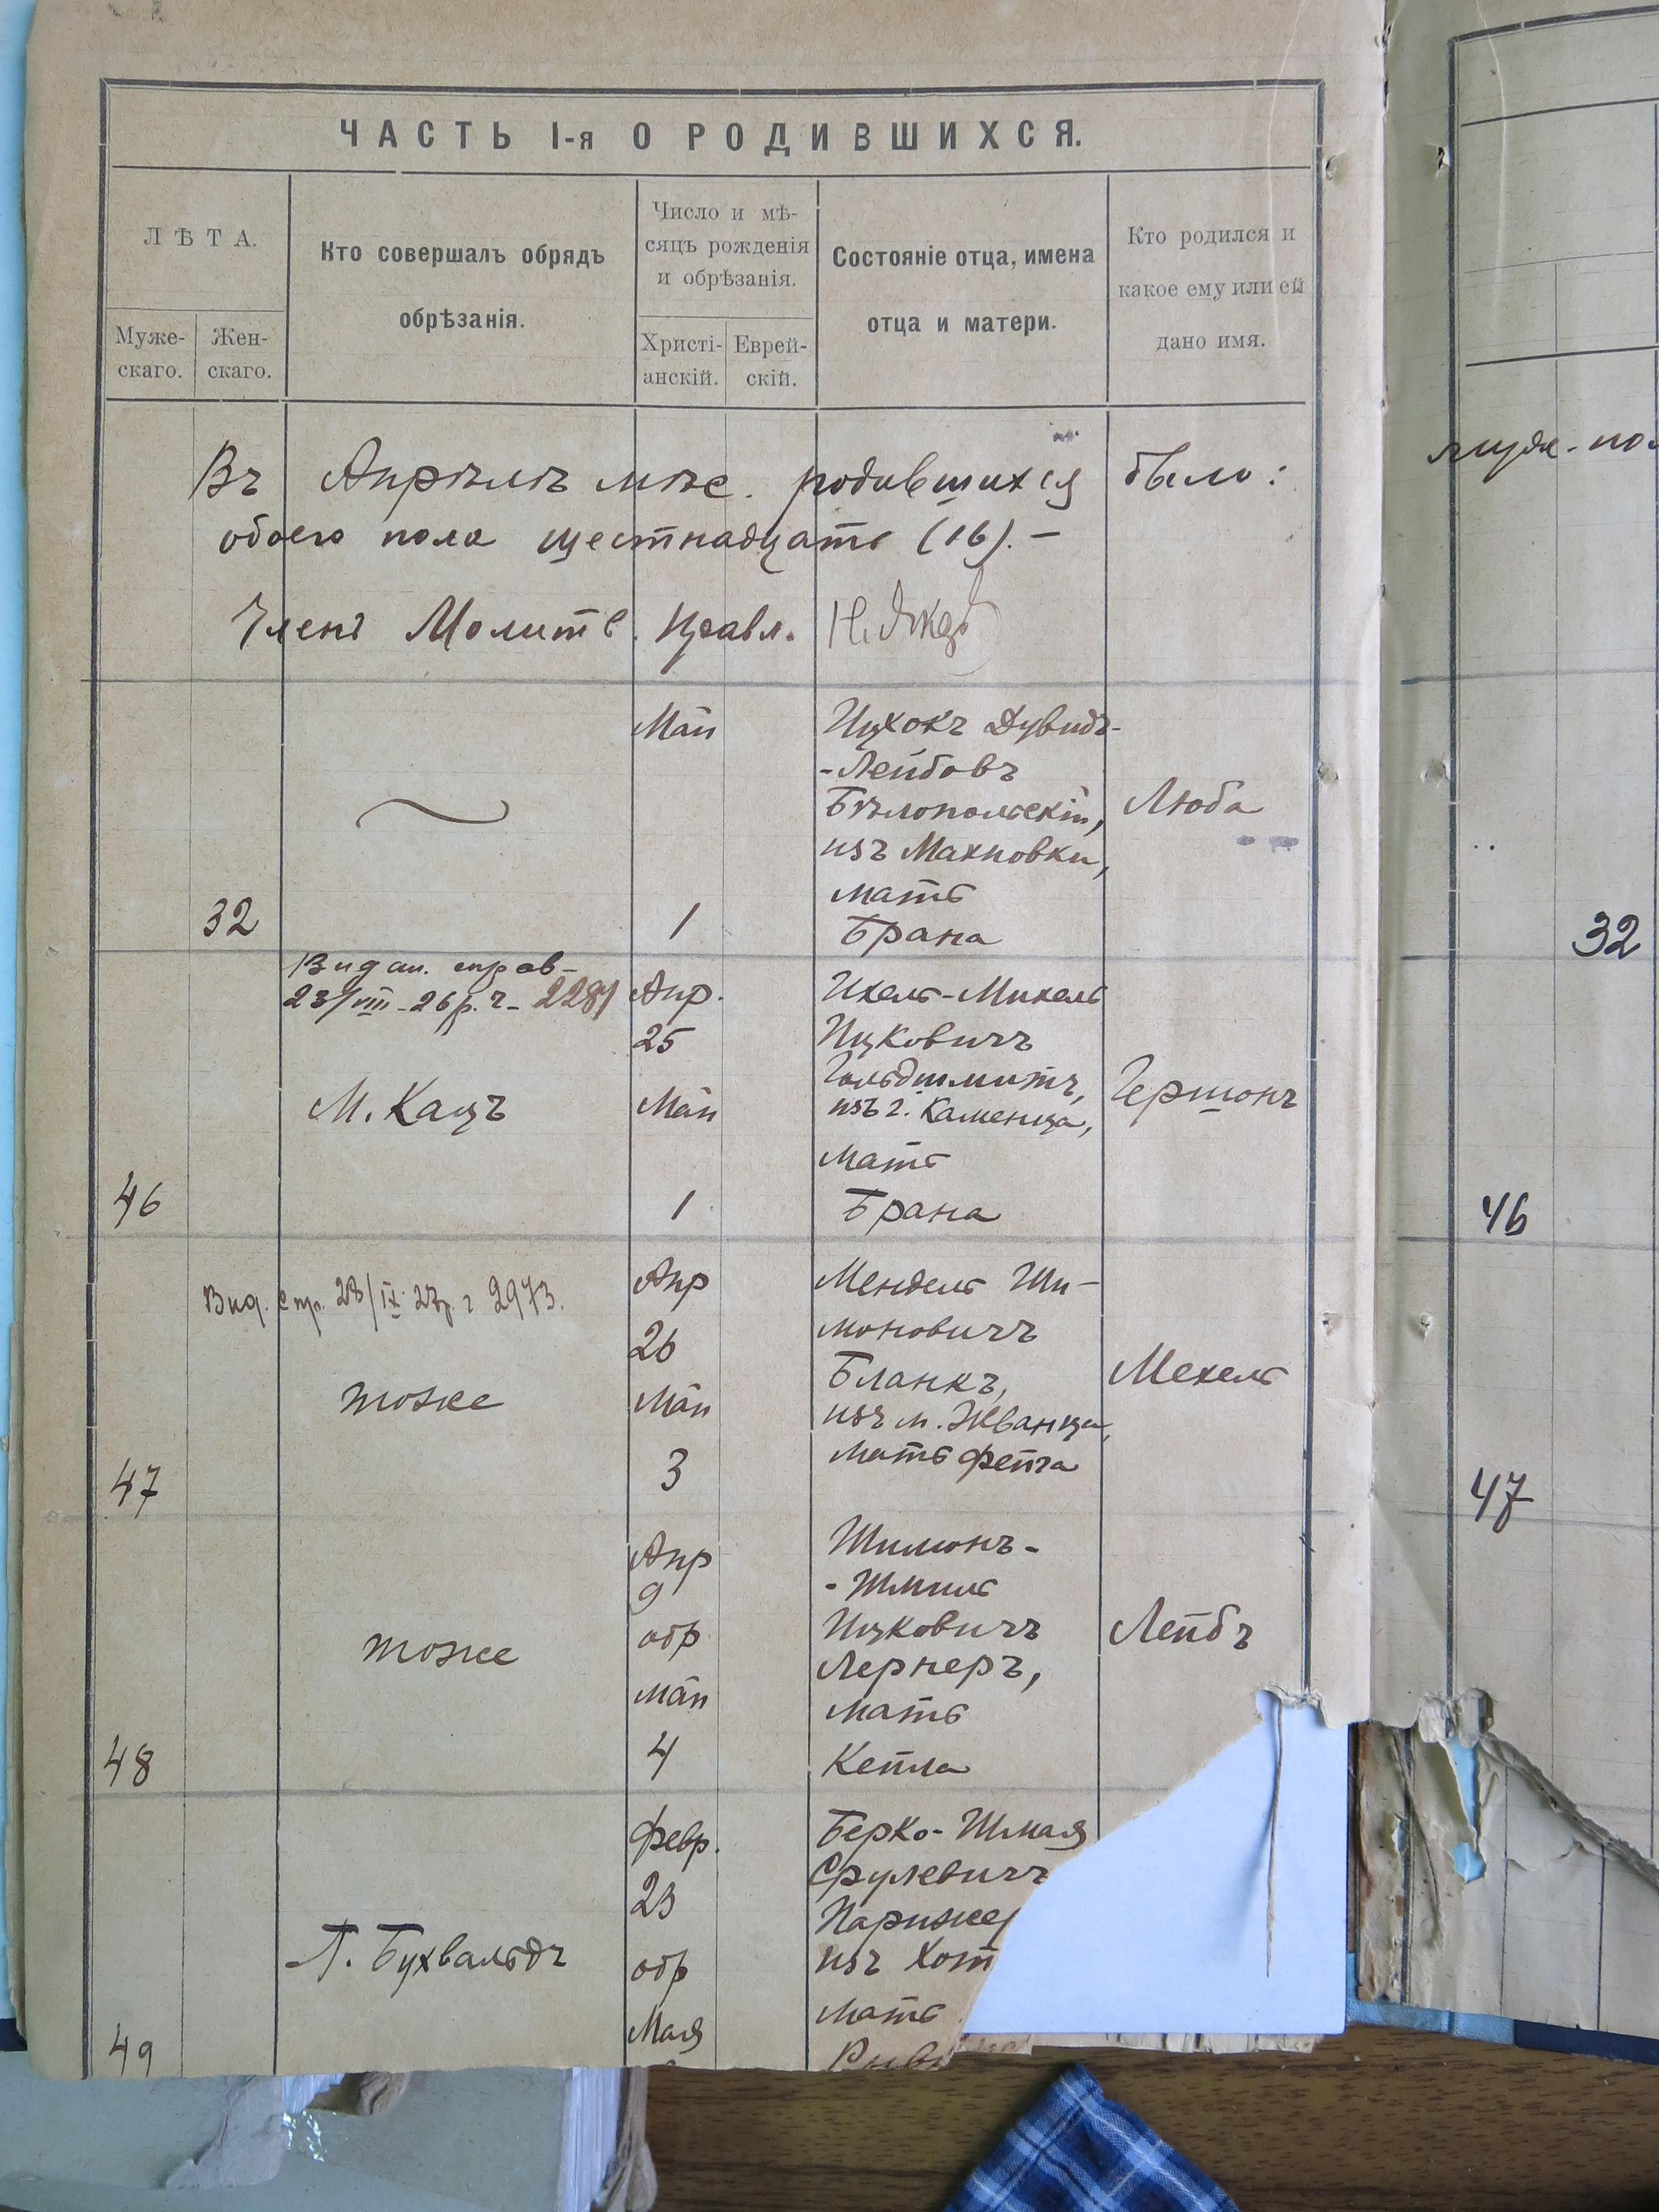 ЧАСТЬ I-я О РОДИВШИХСЯ.
ЛѢТА.
Муже-
скаго.
Жен-
скаго.
Кто совершалъ обрядъ
обрѣзанія.
Число и мѣ-
сяцъ рожденія
и обрѣзанія.
Христі-
анскій.
Еврей-
скій.
Состояніе отца, имена
отца и матери.
Кто родился и
какое ему или ей
дано имя.
Въ Апрѣлѣ мѣс. родившихся было:
обоего пола шестнадцать (16). —
Членъ Молитв. Правл.
32
Май
1
Ицхокъ Дувидъ-
-Лейбовъ
Бѣлопольскій,
изъ Махновки,
мать
Брана
Люба
46
Видан. справ-
23/VIII-26 р. ч-
М. Кацъ
Апр.
25
Май
1
Ихель-Михель
Ицковичъ
Гольдшмитъ,
изъ г. Каменца,
мать
Брана
Гершонъ
47
Вид. спр. 23/IX 27р. г 2973.
тоже
Апр
26
Май
3
Мендель Ши-
моновичъ
Бланкъ,
изъ м. Жванца,
мать Фейга
Мехель
48
тоже
Апр
9
обр
май
4
Шимонъ-
-Шмиль
Ицковичъ
Лернеръ,
мать
Кейла
Лейбъ
49
Л. Бухвальдъ
февр.
23
обр
Мая
Берко-Шмая
Срулевичъ
Париже
изъ Хот
мать
Рив
32
46
47